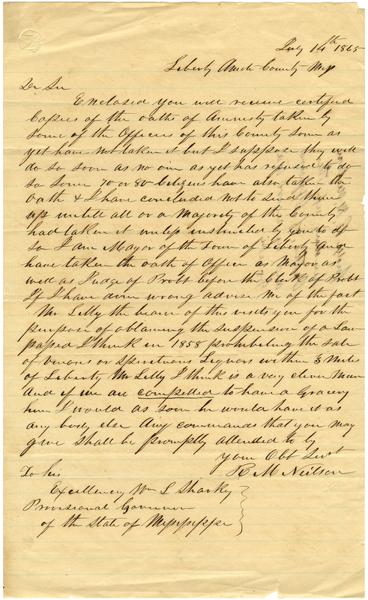 July 14th 1865
Liberty Amite County Mips
Dr Sir
Enclosed you will receive certified
Copies of the oaths of Amnesty taken by
Some of the Officers of this County Some as
yet have not taken it but I suppose they will
do so soon as no one as yet has refused to do
so Some 70 or 80 Citizens have also taken the
Oath & I have concluded not to send them
up untill all or a Majority of the County
had taken it unless instructed by you to do
so I am Mayor of the Town of Liberty
have taken the oath of Office as Mayor as
well as Judge of Probt before the Clerk of Probt
If I have done wrong advise me of the fact
Mr Lilly the bearer of this visits you for the
purpose of obtaining the suspension of a Law
passed I think in 1858 prohibiting the sale
of Venous or Spirituous Liquors within 5 Miles
of Liberty Mr Lilly I think is a very clever Man
And if we are compelled to have a Grocery
here I would as soon he would have it as
any body else Any commands that you may
give Shall be promptly attended to by
your Obt Svt
R M Neilson
To his
Excellency Wm L Sharkey
Provisional Governor
of the State of Mippippi